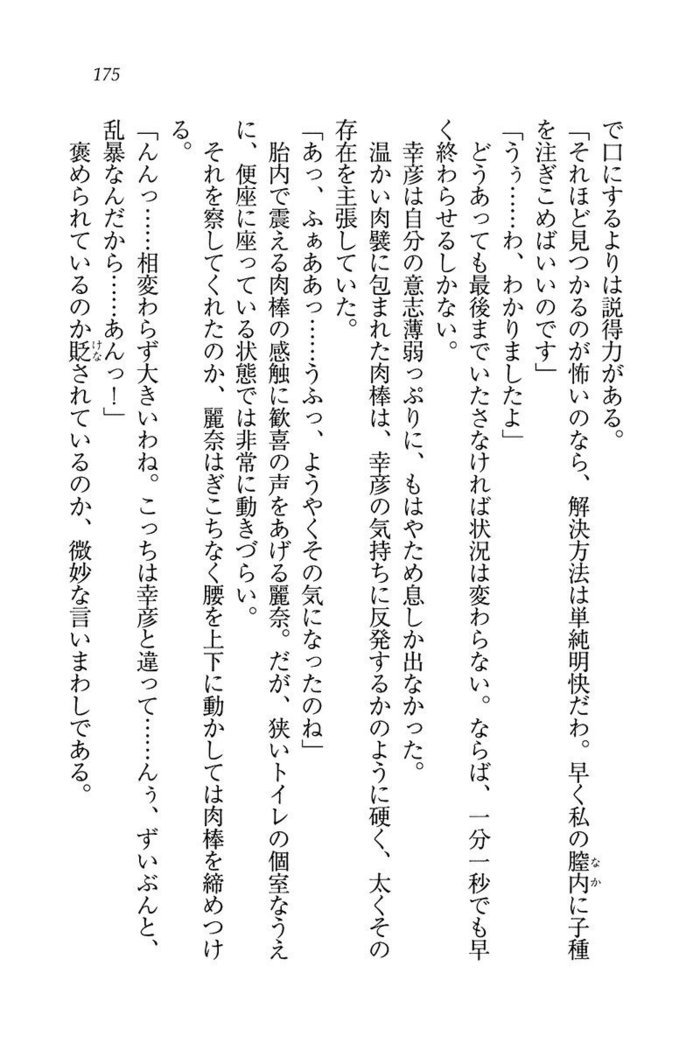 175
で口にするよりは説得力がある。
「それほど見つかるのが怖いのなら、解決方法は単純明快だわ。早く私の膣内に子種
なか
を注ぎこめばいいのです」
「うぅ……わ、わかりましたよ」
どうあっても最後までいたさなければ状況は変わらない。ならば、一分一秒でも早
く終わらせるしかない。
幸彦は自分の意志薄弱っぷりに、もはやため息しか出なかった。
温かい肉襞に包まれた肉棒は、幸彦の気持ちに反発するかのように硬く、太くその
存在を主張していた。
「あっ、ふぁああっ……うふっ、ようやくその気になったのね」
胎内で震える肉棒の感触に歓喜の声をあげる麗奈。だが、狭いトイレの個室なうえ
に、便座に座っている状態では非常に動きづらい。
それを察してくれたのか、麗奈はぎこちなく腰を上下に動かしては肉棒を締めつけ
る。
「んんっ……相変わらず大きいわね。こっちは幸彦と違って……んぅ、ずいぶんと、
乱暴なんだから……あんっ！」
褒められているのか貶されているのか、微妙な言いまわしである。
けな